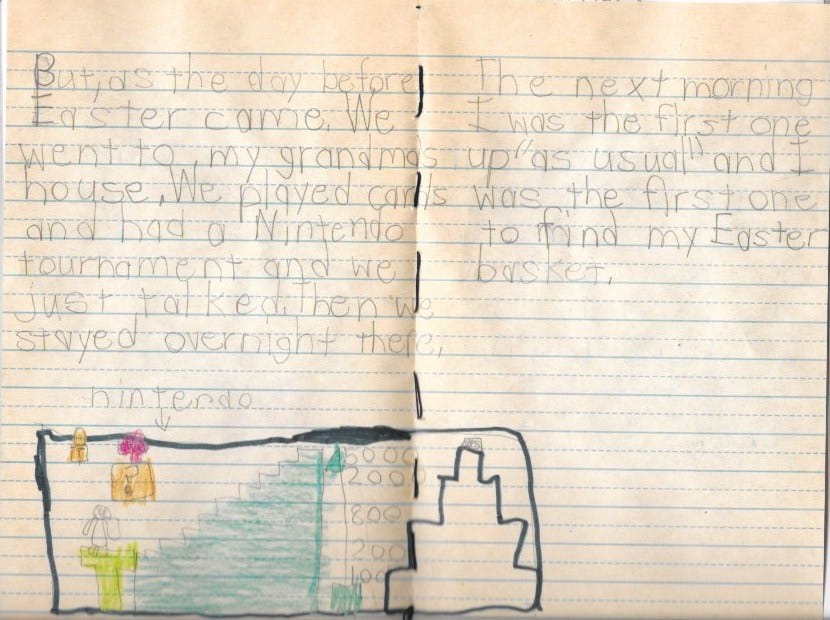 But, as the day before
Easter came. We
went to, my grandmas
house. We played cards
and had a Nintendo
tournament and we
just talked. Then we
stayed overnight there.
The next morning
I was the first one
up "as usual" and I
was the first one
to find my Easter
basket.
nintendo
?
5000
2000
800
200
100